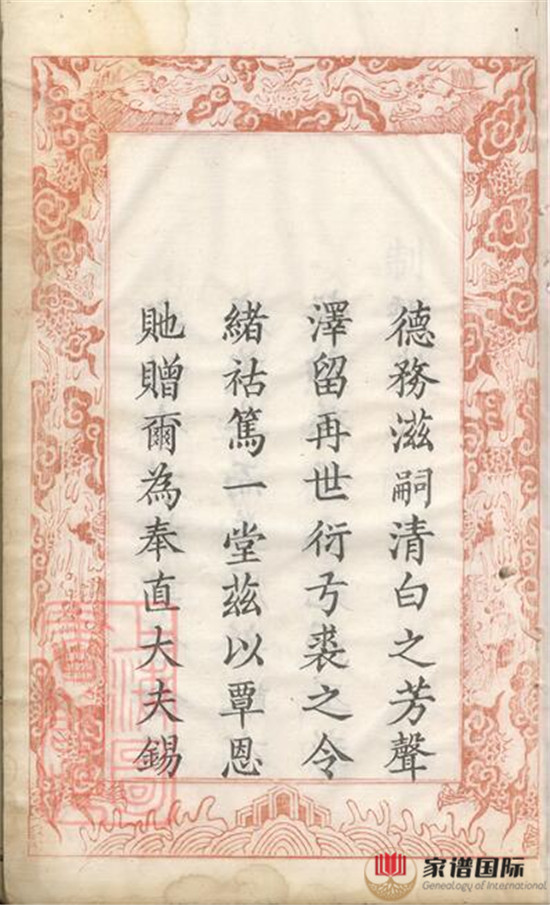 德務滋嗣清白之芳聲
澤留再世衍弓裘之令
緒祜篤一堂茲以覃恩
貤贈爾為奉直大夫錫
上海圖
書館藏
家谱国际
Genealogy of International